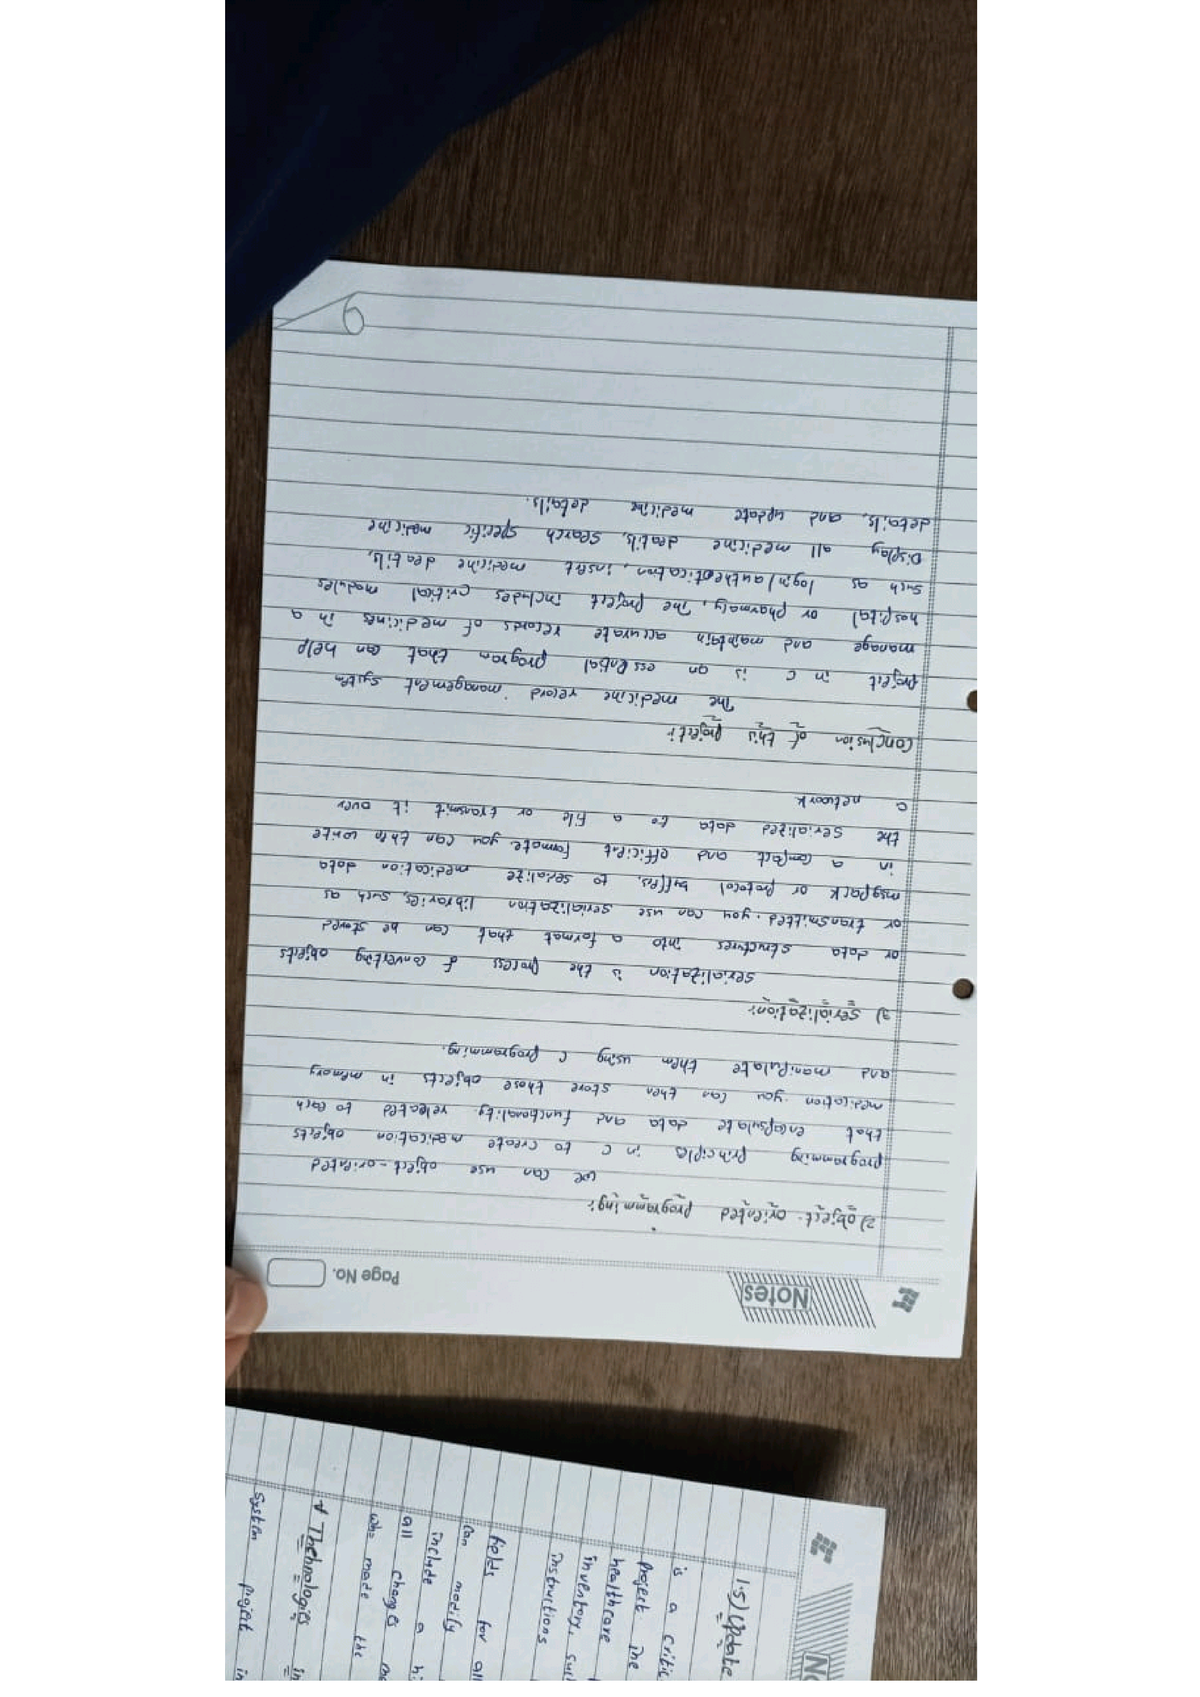 Notes
Page No.
2) object-oriented programming:
we can use object-oriented
programming principls in c to create medication objects
that encapsulate data and functionality releated to each
medication. you can then store those objects in memory
and manipulate them using c programming.
3) serialization:
serialization is the process of converting objects
or data structures into a format that can be stored
or transmitted. you can use serialization libraries, such as
msgpack or protocol buffers, to serialize medication data
in a compact and efficient formate. you can thto write
the serialized data to a file or transmit it over
a network
conclusion of this project:
The medicine record management system
project in c is an essential program that can help
manage and maintain accurate records of medicines in a
hospital or pharmacy, The project includes critical modules
such as login/authentication, insert medicine deatils,
Display all medicine deatils, search specific medicine
details, and update medicine details.
1.5) Update
is a critic
project The
healthcare
inventory, suc
instructions
fields for all
can modify
include a hi
all changes ma
who made the
Thehnologies in
system project in